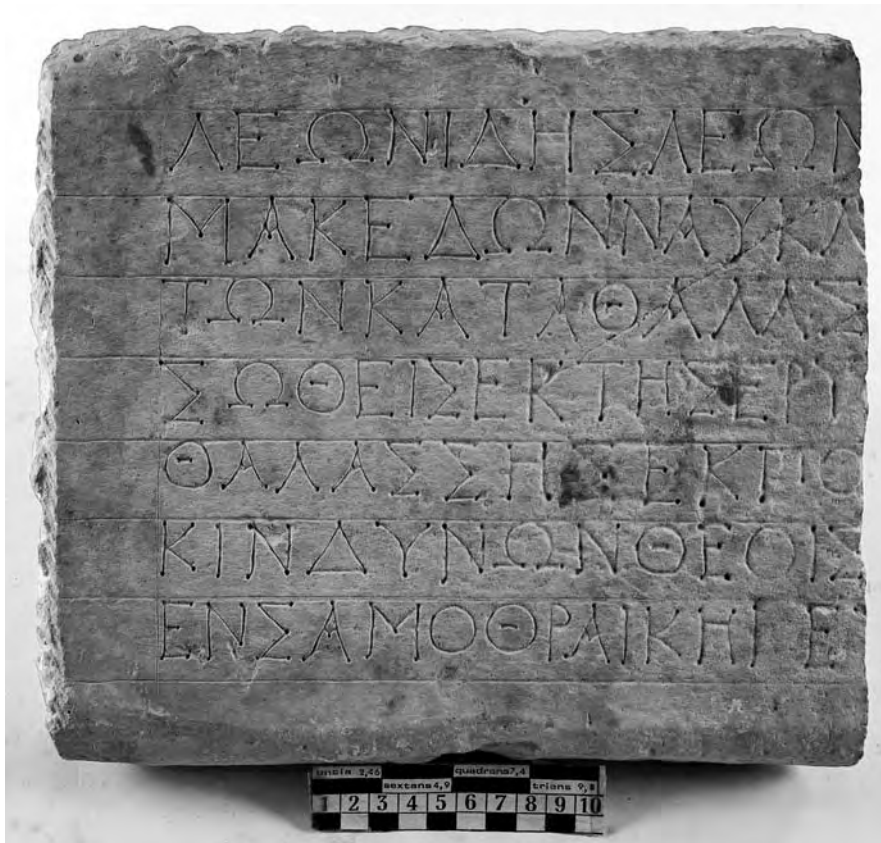 ΛΕΩΝΙΔΗΣΛΕΩΝ
ΜΑΚΕΔΩΝΝΑΥΚΛ
ΤΩΝΚΑΤΑΘΑΛΑΣ
ΣΩΘΕΙΣΕΚΤΗΣΕΡΥ
ΘΑΛΑΣΣΗΣΕΚΠΟ
ΚΙΝΔΥΝΩΝΘΕΟΙΣ
ΕΝΣΑΜΟΘΡΑΙΚΗΙ ΕΥ
uncia 2,46 quadrans7,4
sextans4,9 triens 9,8
1 2 3 4 5 6 7 8 9 10